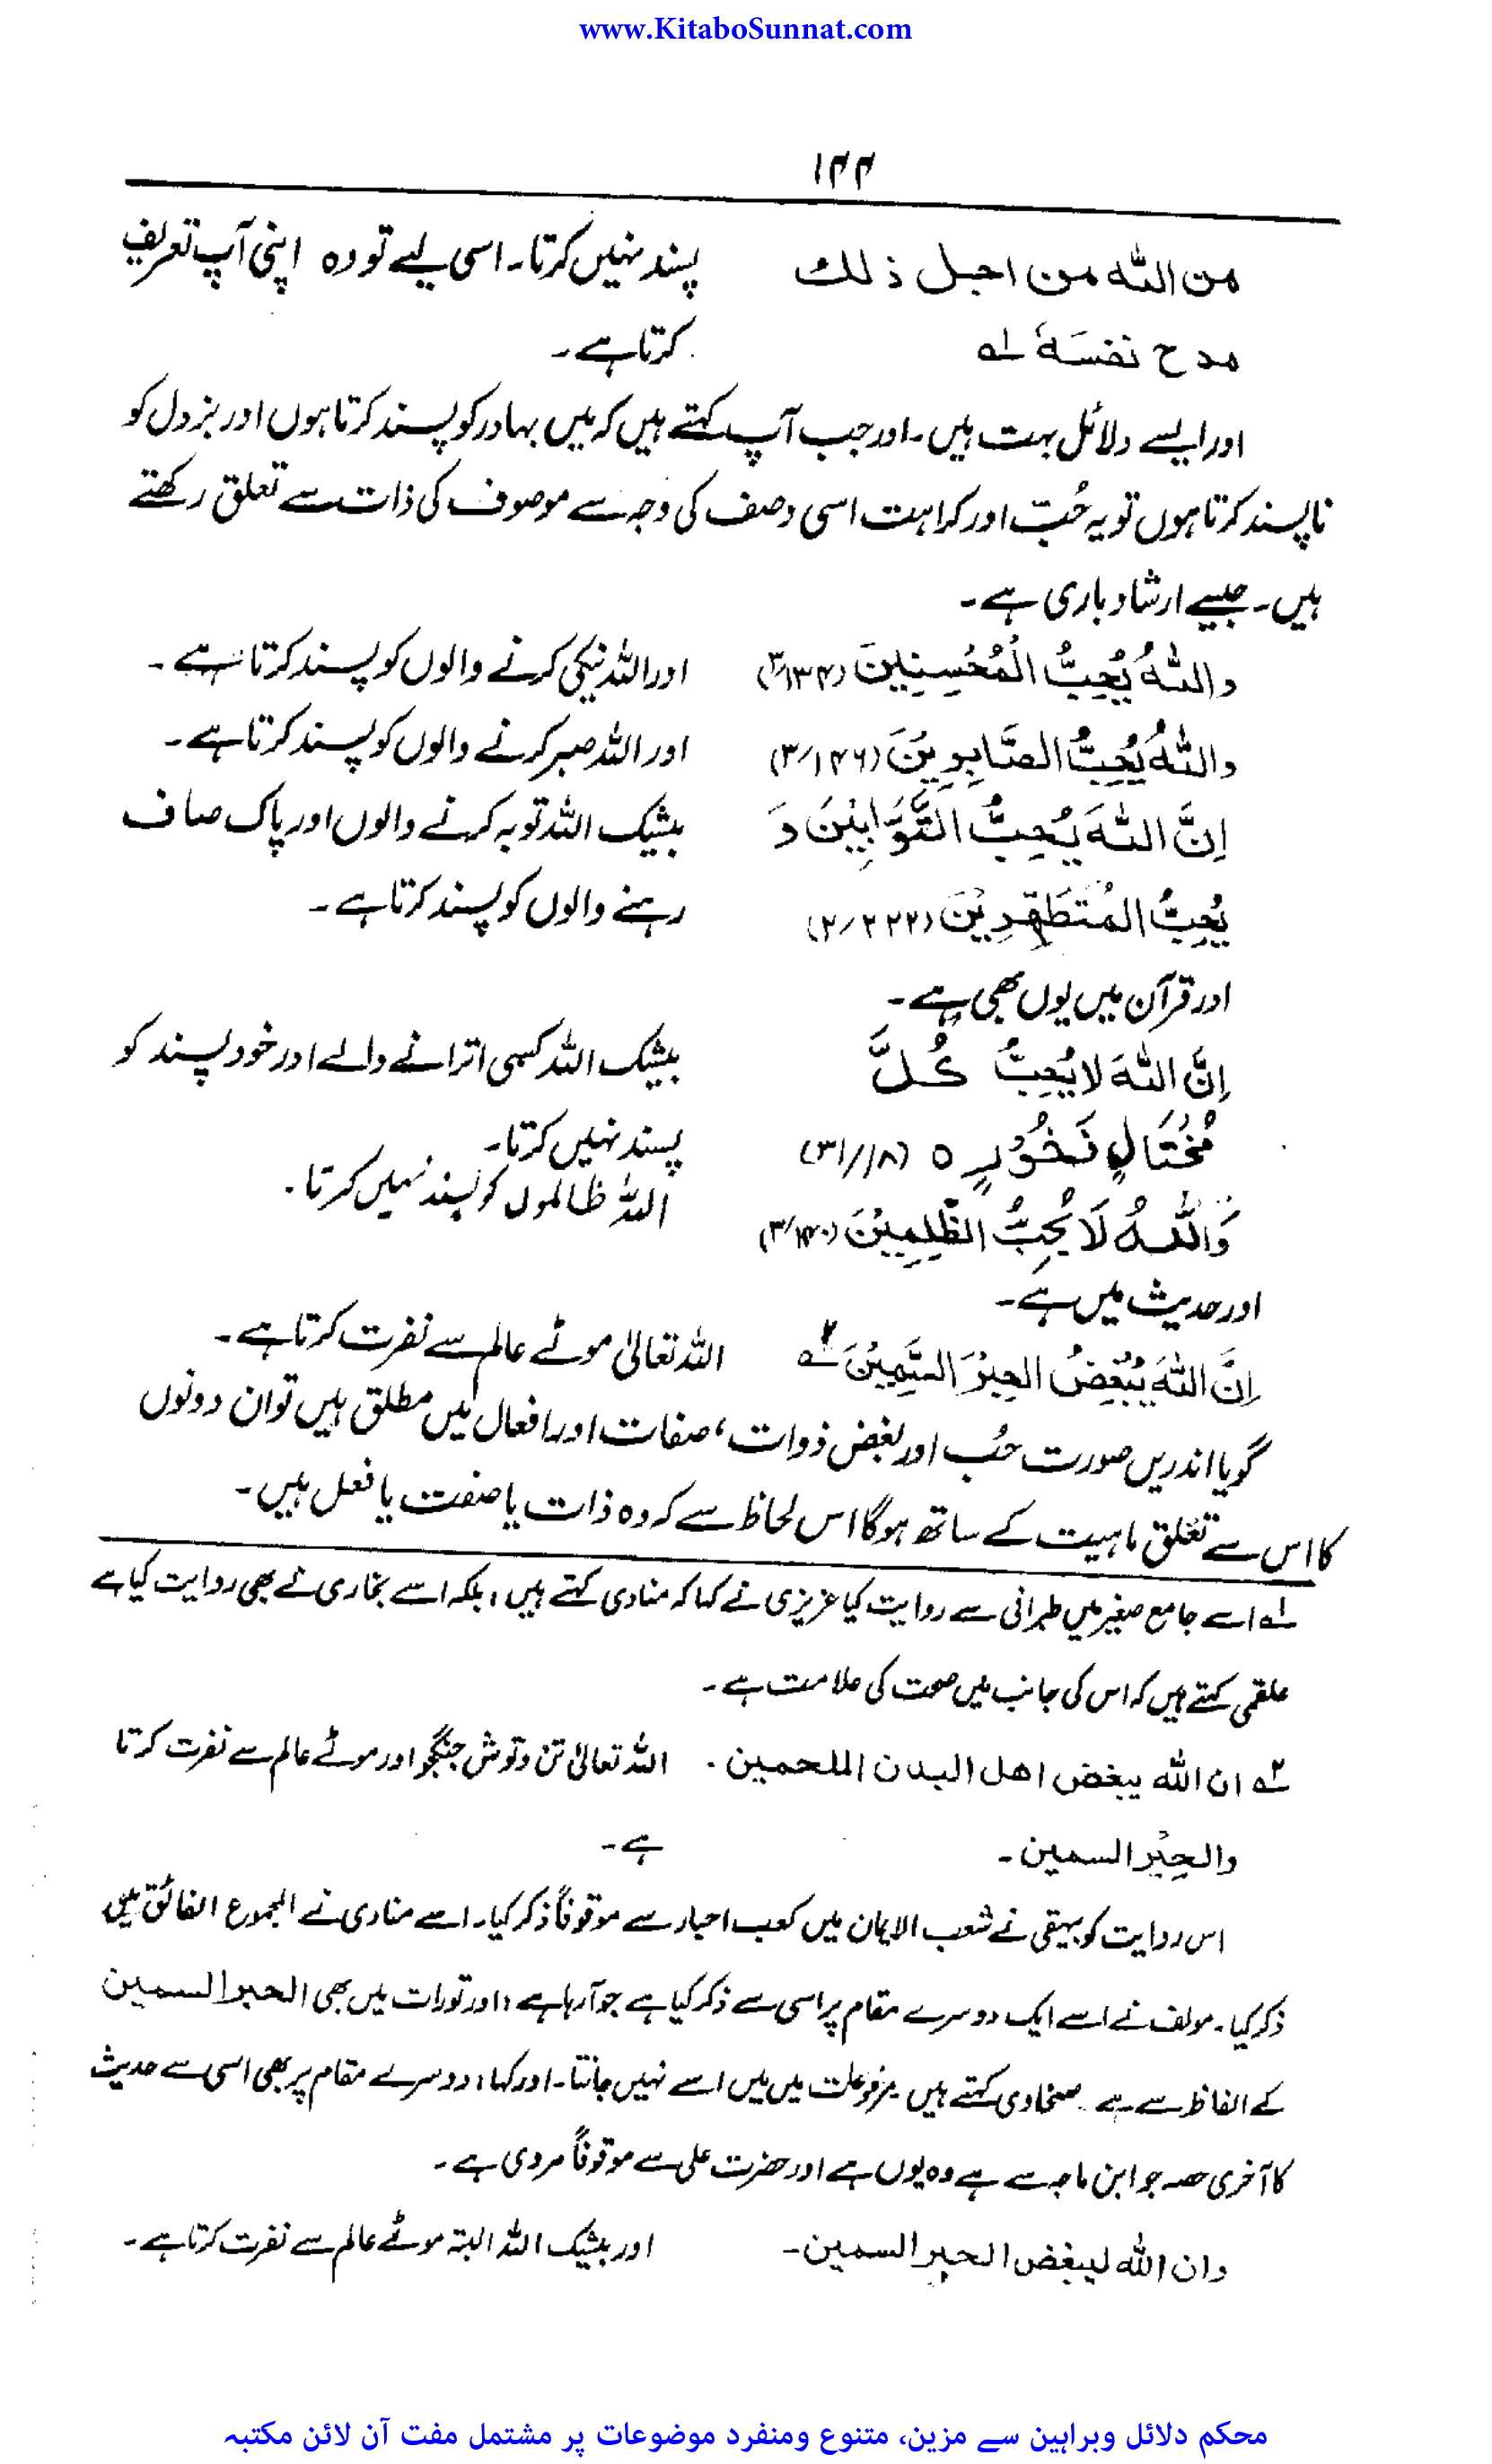 www.KitaboSunnat.com
۱۴۴
من الله من اجل ذلك پسند نہیں کرتا۔ اسی لیے تو وہ اپنی آپ تعریف
مدح نفسَہٗ لہ کرتا ہے۔
اور ایسے دلائل بہت ہیں۔ اور جب آپ کہتے ہیں کہ میں بہادر کو پسند کرتا ہوں اور بزدل کو
ناپسند کرتا ہوں تو یہ حُبّ اور کراہت اسی وصف کی وجہ سے موصوف کی ذات سے تعلق رکھتے
ہیں۔ جیسے ارشاد باری ہے۔
واللهُ يُحِبُّ الْمُحْسِنِينَ (۳/۱۳۴) اور اللہ نیکی کرنے والوں کو پسند کرتا ہے۔
واللهُ يُحِبُّ الصَّابِرِيْنَ (۳/۱۴۶) اور اللہ صبر کرنے والوں کو پسند کرتا ہے۔
اِنَّ اللهَ يُحِبُّ التَّوَّابِيْنَ وَ بیشک اللہ توبہ کرنے والوں اور پاک صاف
يُحِبُّ المُتَطَهِّرِيْنَ (۲/۲۲۲) رہنے والوں کو پسند کرتا ہے۔
اور قرآن میں یوں بھی ہے۔
اِنَّ اللهَ لا يُحِبُّ كُلَّ بیشک اللہ کسی اترانے والے اور خود پسند کو
مُخْتَالٍ فَخُوْرٍ ○ (۳۱/۱۸) پسند نہیں کرتا۔
وَاللهُ لَا يُحِبُّ الظّٰلِمِيْنَ (۳/۱۴۰) اللہ ظالموں کو پسند نہیں کرتا۔
اور حدیث میں ہے۔
اِنَّ اللهَ يُبْغِضُ الحِبْرَ السَّمِيْنَ ۲؎ اللہ تعالیٰ موٹے عالم سے نفرت کرتا ہے۔
گویا اندریں صورت حُب اور بغض ذوات، صفات اور افعال میں مطلق ہیں تو ان دونوں
کا اس سے تعلق ماہیت کے ساتھ ہوگا اس لحاظ سے کہ وہ ذات یا صفت یا فعل ہیں۔
لہ اسے جامع صغیر میں طبرانی سے روایت کیا عزیزی نے کہا کہ مناوی کہتے ہیں، بلکہ اسے بخاری نے بھی روایت کیا ہے
علقمی کہتے ہیں کہ اس کی جانب میں صحت کی علامت ہے۔
۲؎ ان الله يبغض اهل البدن اللحمين۔ اللہ تعالیٰ تن و توش جنگجو اور موٹے عالم سے نفرت کرتا
والحِبْر السمین۔ ہے۔
اس روایت کو بیہقی نے شعب الایمان میں کعب احبار سے موقوفاً ذکر کیا۔ اسے مناوی نے المجموع الفائق میں
ذکر کیا۔ مولف نے اسے ایک دوسرے مقام پر اسی سے ذکر کیا ہے جو آرہا ہے، اور تورات میں بھی الحبر السمین
کے الفاظ سے ہے۔ سخاوی کہتے ہیں مرفوعات میں میں اسے نہیں جانتا۔ اور کہا، دوسرے مقام پر بھی اسی سے حدیث
کا آخری حصہ جو ابن ماجہ سے ہے وہ یوں ہے اور حضرت علی سے موقوفاً مروی ہے۔
وان الله ليبغض الحبر السمین۔ اور بیشک اللہ البتہ موٹے عالم سے نفرت کرتا ہے۔
محکم دلائل وبراہین سے مزین، متنوع ومنفرد موضوعات پر مشتمل مفت آن لائن مکتبہ